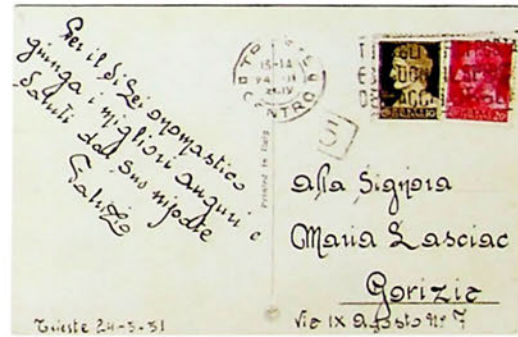 Per il di Lei onomastico
giunga i migliori auguri e
Saluti dal Suo nipote
Trieste 24-3-31
Printed in Italy
15-14
CENTRO
Alla Signora
Maria Lasciac
Gorizia
Via IX Agosto Nr. 7